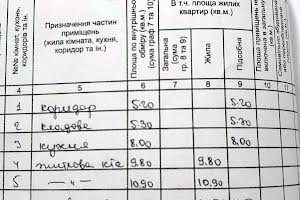 №№ кімнат, кухні, коридорів та ін.
Призначення частин приміщень (жила кімната, кухня, коридор та ін.
Площа по внутрішньому обміру (кв.м.) (сума граф 7 та 10)
В т.ч. площа жилих квартир (кв.м.)
Загальна (сума гр. 8 та 9)
Жила
Підсобна
4 5 6 7 8 9 10 11
1 коридор 5.20 5.20
2 кладове 5.30 5.30
3 кухня 8.00 8.00
4 житлова кіа 9.80 9.80
5 —"— 10.90 10.90